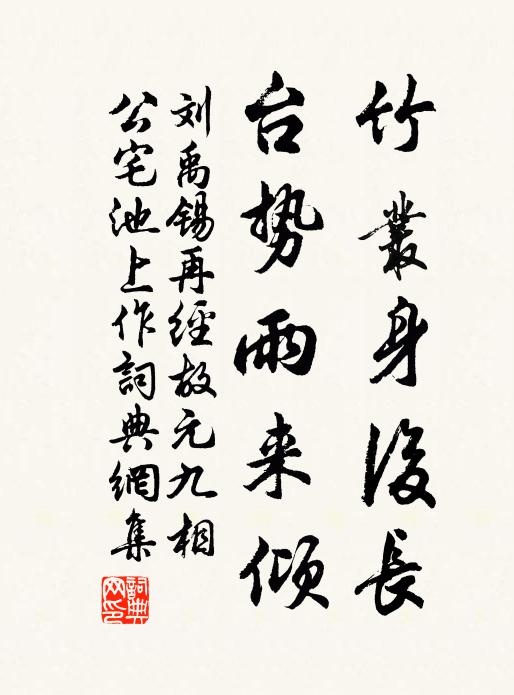 竹叢身後長
台势雨来倾
刘禹锡再經故元九相
公宅池上作詞典網集
詞典網印